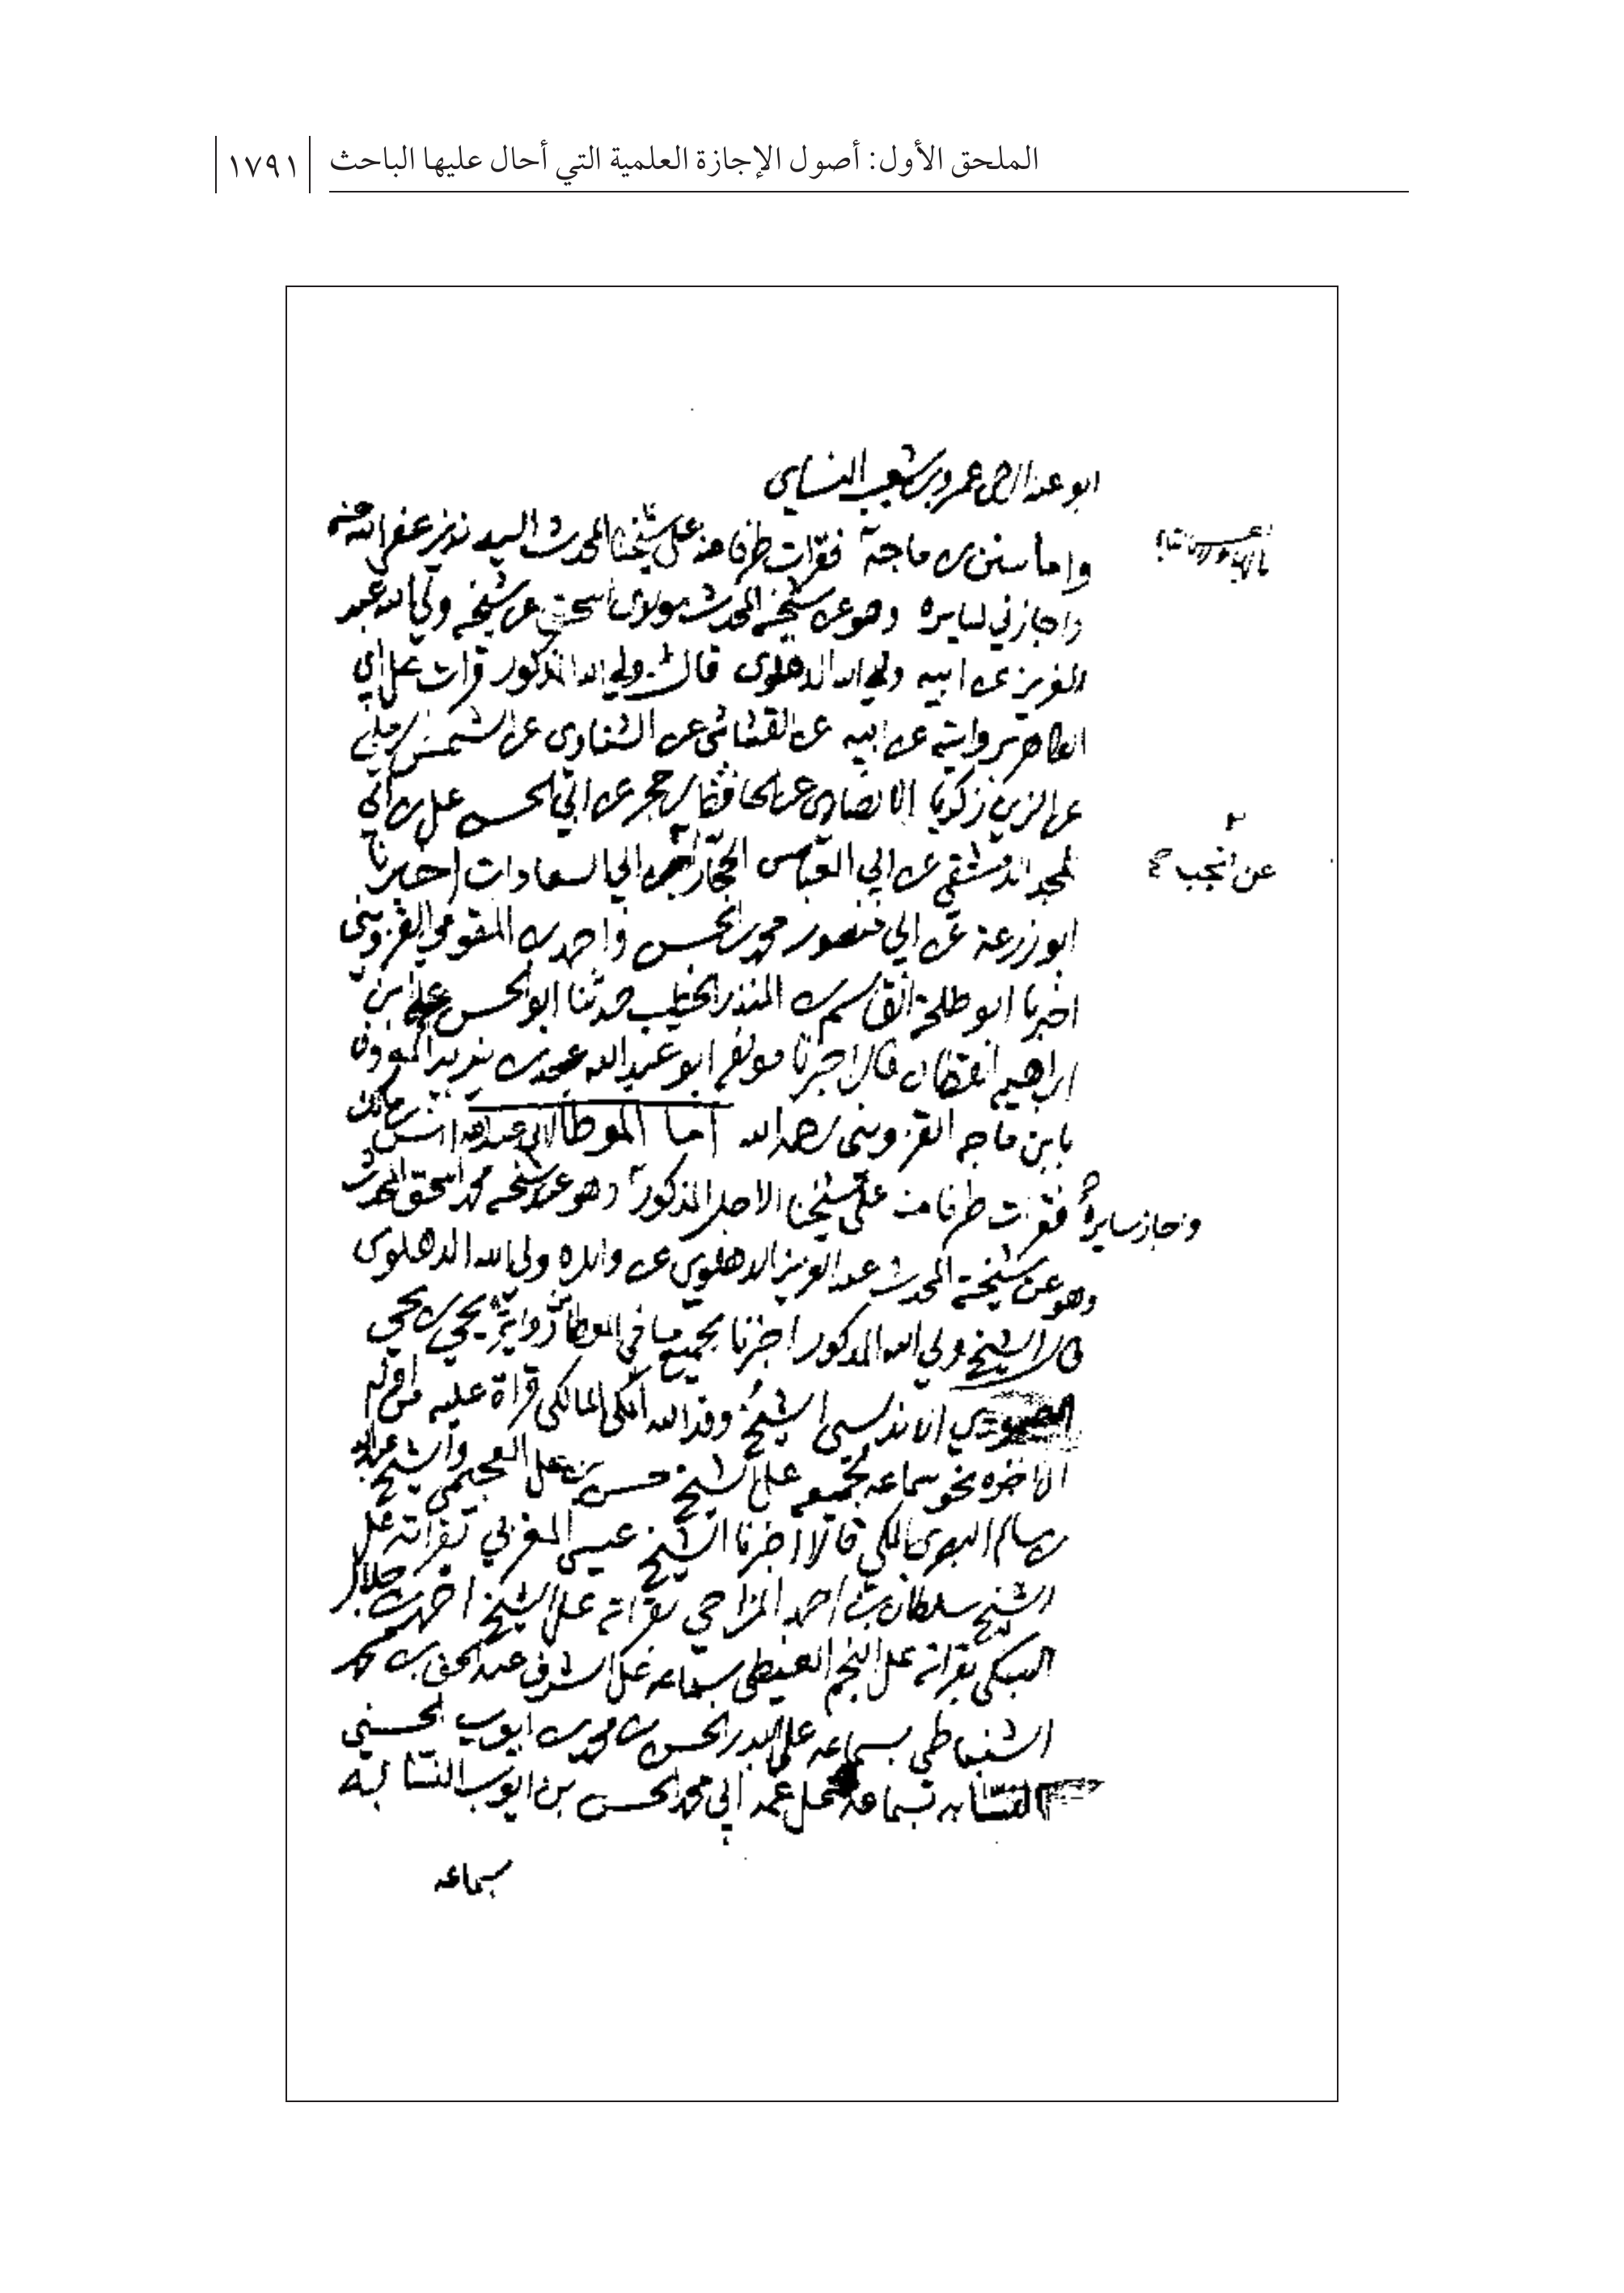 الملحق الأول: أصول الإجازة العلمية التي أحال عليها الباحث
١٧٩١
ابو عبد الرحمن عمرو بن شعيب النساى
واما سنن بن ماجة فقرات طرفا منه على شيخنا المحدث السيد نذير عفى الله عنه
واجازني لسايره وهو عن شيخه المحدث مولانا اسحق عن شيخه ولي الله عبد
العزيز عن ابيه ولي الله الدهلوى قال ولي الله المذكور قرات على ابي
الطاهر بروايته عن ابيه عن القشاشى عن الشناوى عن الشمس الرملي
عن الزين زكريا الانصارى عن الحافظ بن حجر عن ابي الحسن على بن ابي
المجد الدمشقي عن ابي العباس الحجار عن ابي السعادات اخبرنا
عن انجب صح
ابو زرعة عن ابي منصور محمد بن الحسن واحمد بن المقومي القزوينى
اخبرنا ابو طلحة القاسم بن المنذر الخطيب حدثنا ابو الحسن على ابن
ابراهيم القطان قال اخبرنا مولفه ابو عبد الله محمد بن يزيد المعروف
بابن ماجه القزوينى رحمه الله اما الموطا لابي عبد الله انس بن مالك
فقرات طرفا منه على شيخنا الاجل المذكور وهو عن شيخه محمد اسحق المحدث
واجاز سايره
وهو عن شيخه المحدث عبد العزيز الدهلوي عن والده ولي الله الدهلوى
قال الشيخ ولي الله المذكور اخبرنا بجميع ما في الموطا رواية يحيى بن يحيى
المصمودي الاندلسى الشيخ وفد الله المكى المالكى قراة عليه من اوله
الى اخره بحق سماعه لجميعه على الشيخ حسن بن على العجيمى والشيخ عبد الله
بن سالم البصرى المكي قالا اخبرنا الشيخ عيسى المغربي بقراته على
الشيخ سلطان بن احمد المزاحي بقراته على الشيخ احمد بن خليل
السبكى بقراته على النجم الغيطى بسماعه على الشرف عبد الحق بن محمد
السنباطي بسماعه على البدر الحسن بن محمد بن ايوب الحسني
النسابه بسماعه على عمه ابي محمد الحسن بن ايوب النسابه
بسماعه